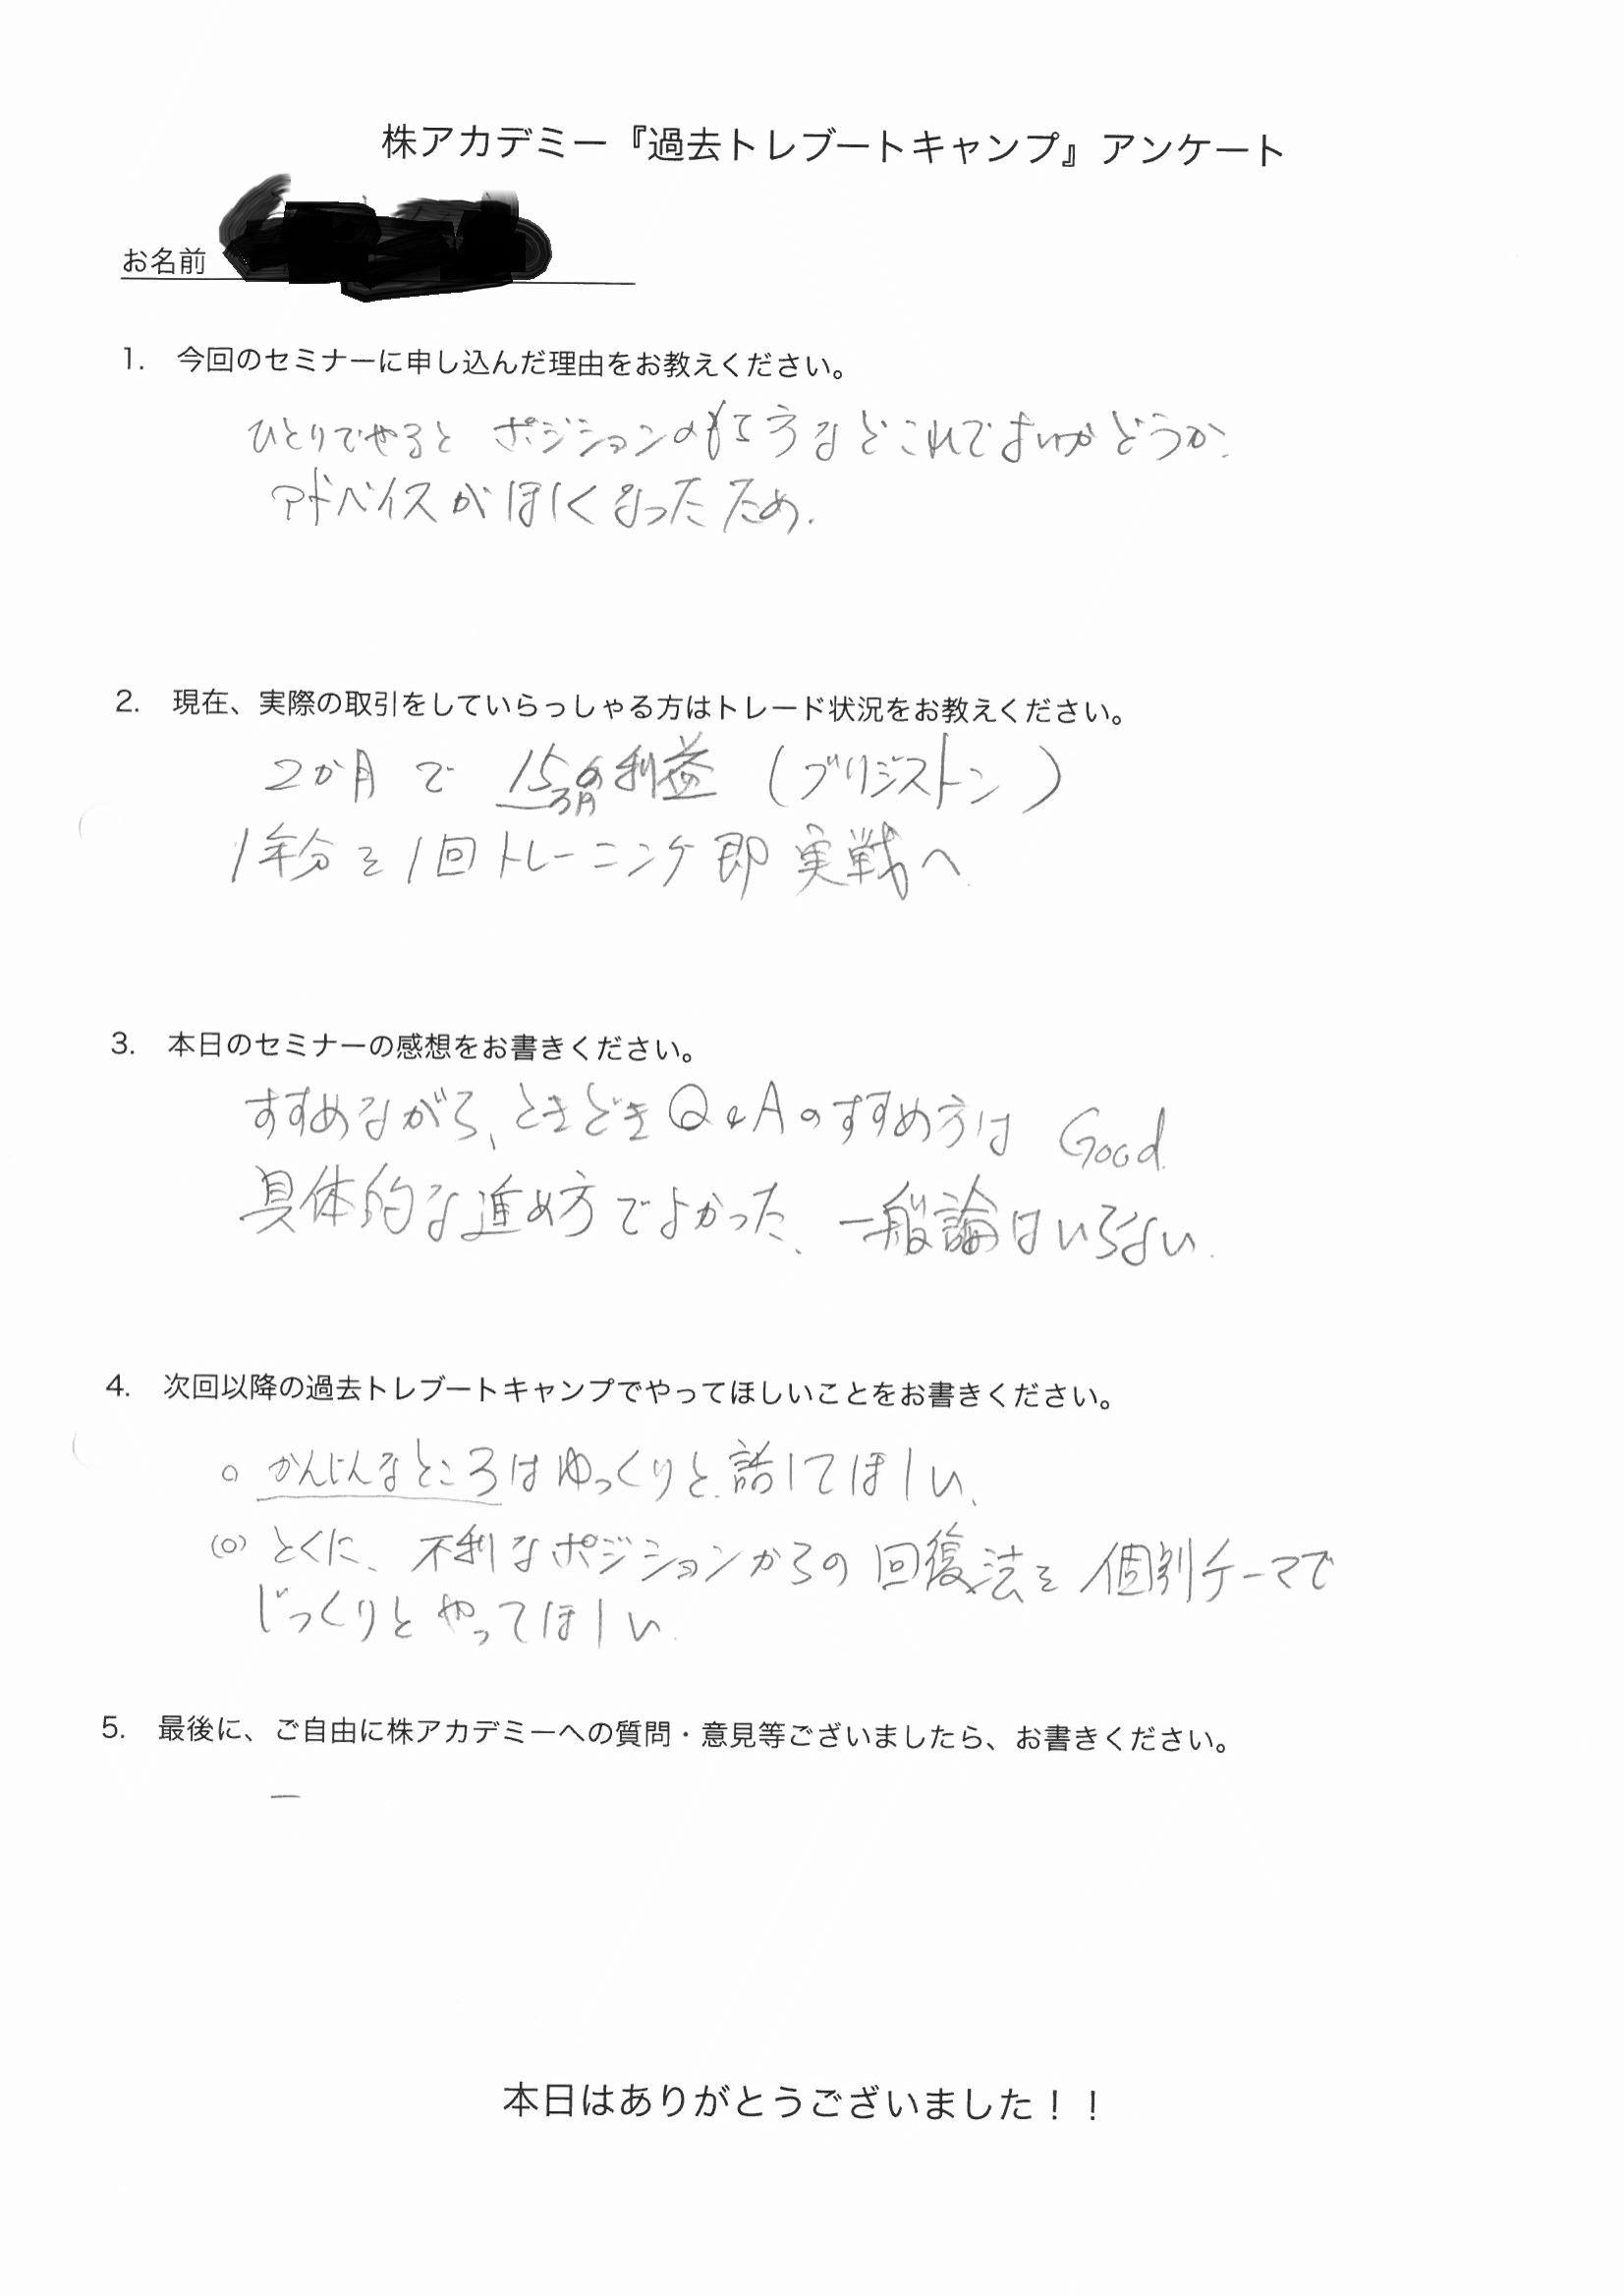 株アカデミー『過去トレブートキャンプ』アンケート
お名前
1. 今回のセミナーに申し込んだ理由をお教えください。
ひとりでやると ポジションの持て方などこれでよいかどうか、
アドバイスがほしくなったため.
2. 現在、実際の取引をしていらっしゃる方はトレード状況をお教えください。
2か月で 15万円の利益 (ブリジストン)
1年分を1回トレーニング即実戦へ.
3. 本日のセミナーの感想をお書きください。
すすめながら、ときどきQ&Aのすすめ方は Good.
具体的な進め方でよかった、一般論はいらない.
4. 次回以降の過去トレブートキャンプでやってほしいことをお書きください。
○ かんじんなところはゆっくりと話してほしい、
(○) とくに、不利なポジションからの回復法を個別テーマで
じっくりとやってほしい.
5. 最後に、ご自由に株アカデミーへの質問・意見等ございましたら、お書きください。
ー
本日はありがとうございました！！